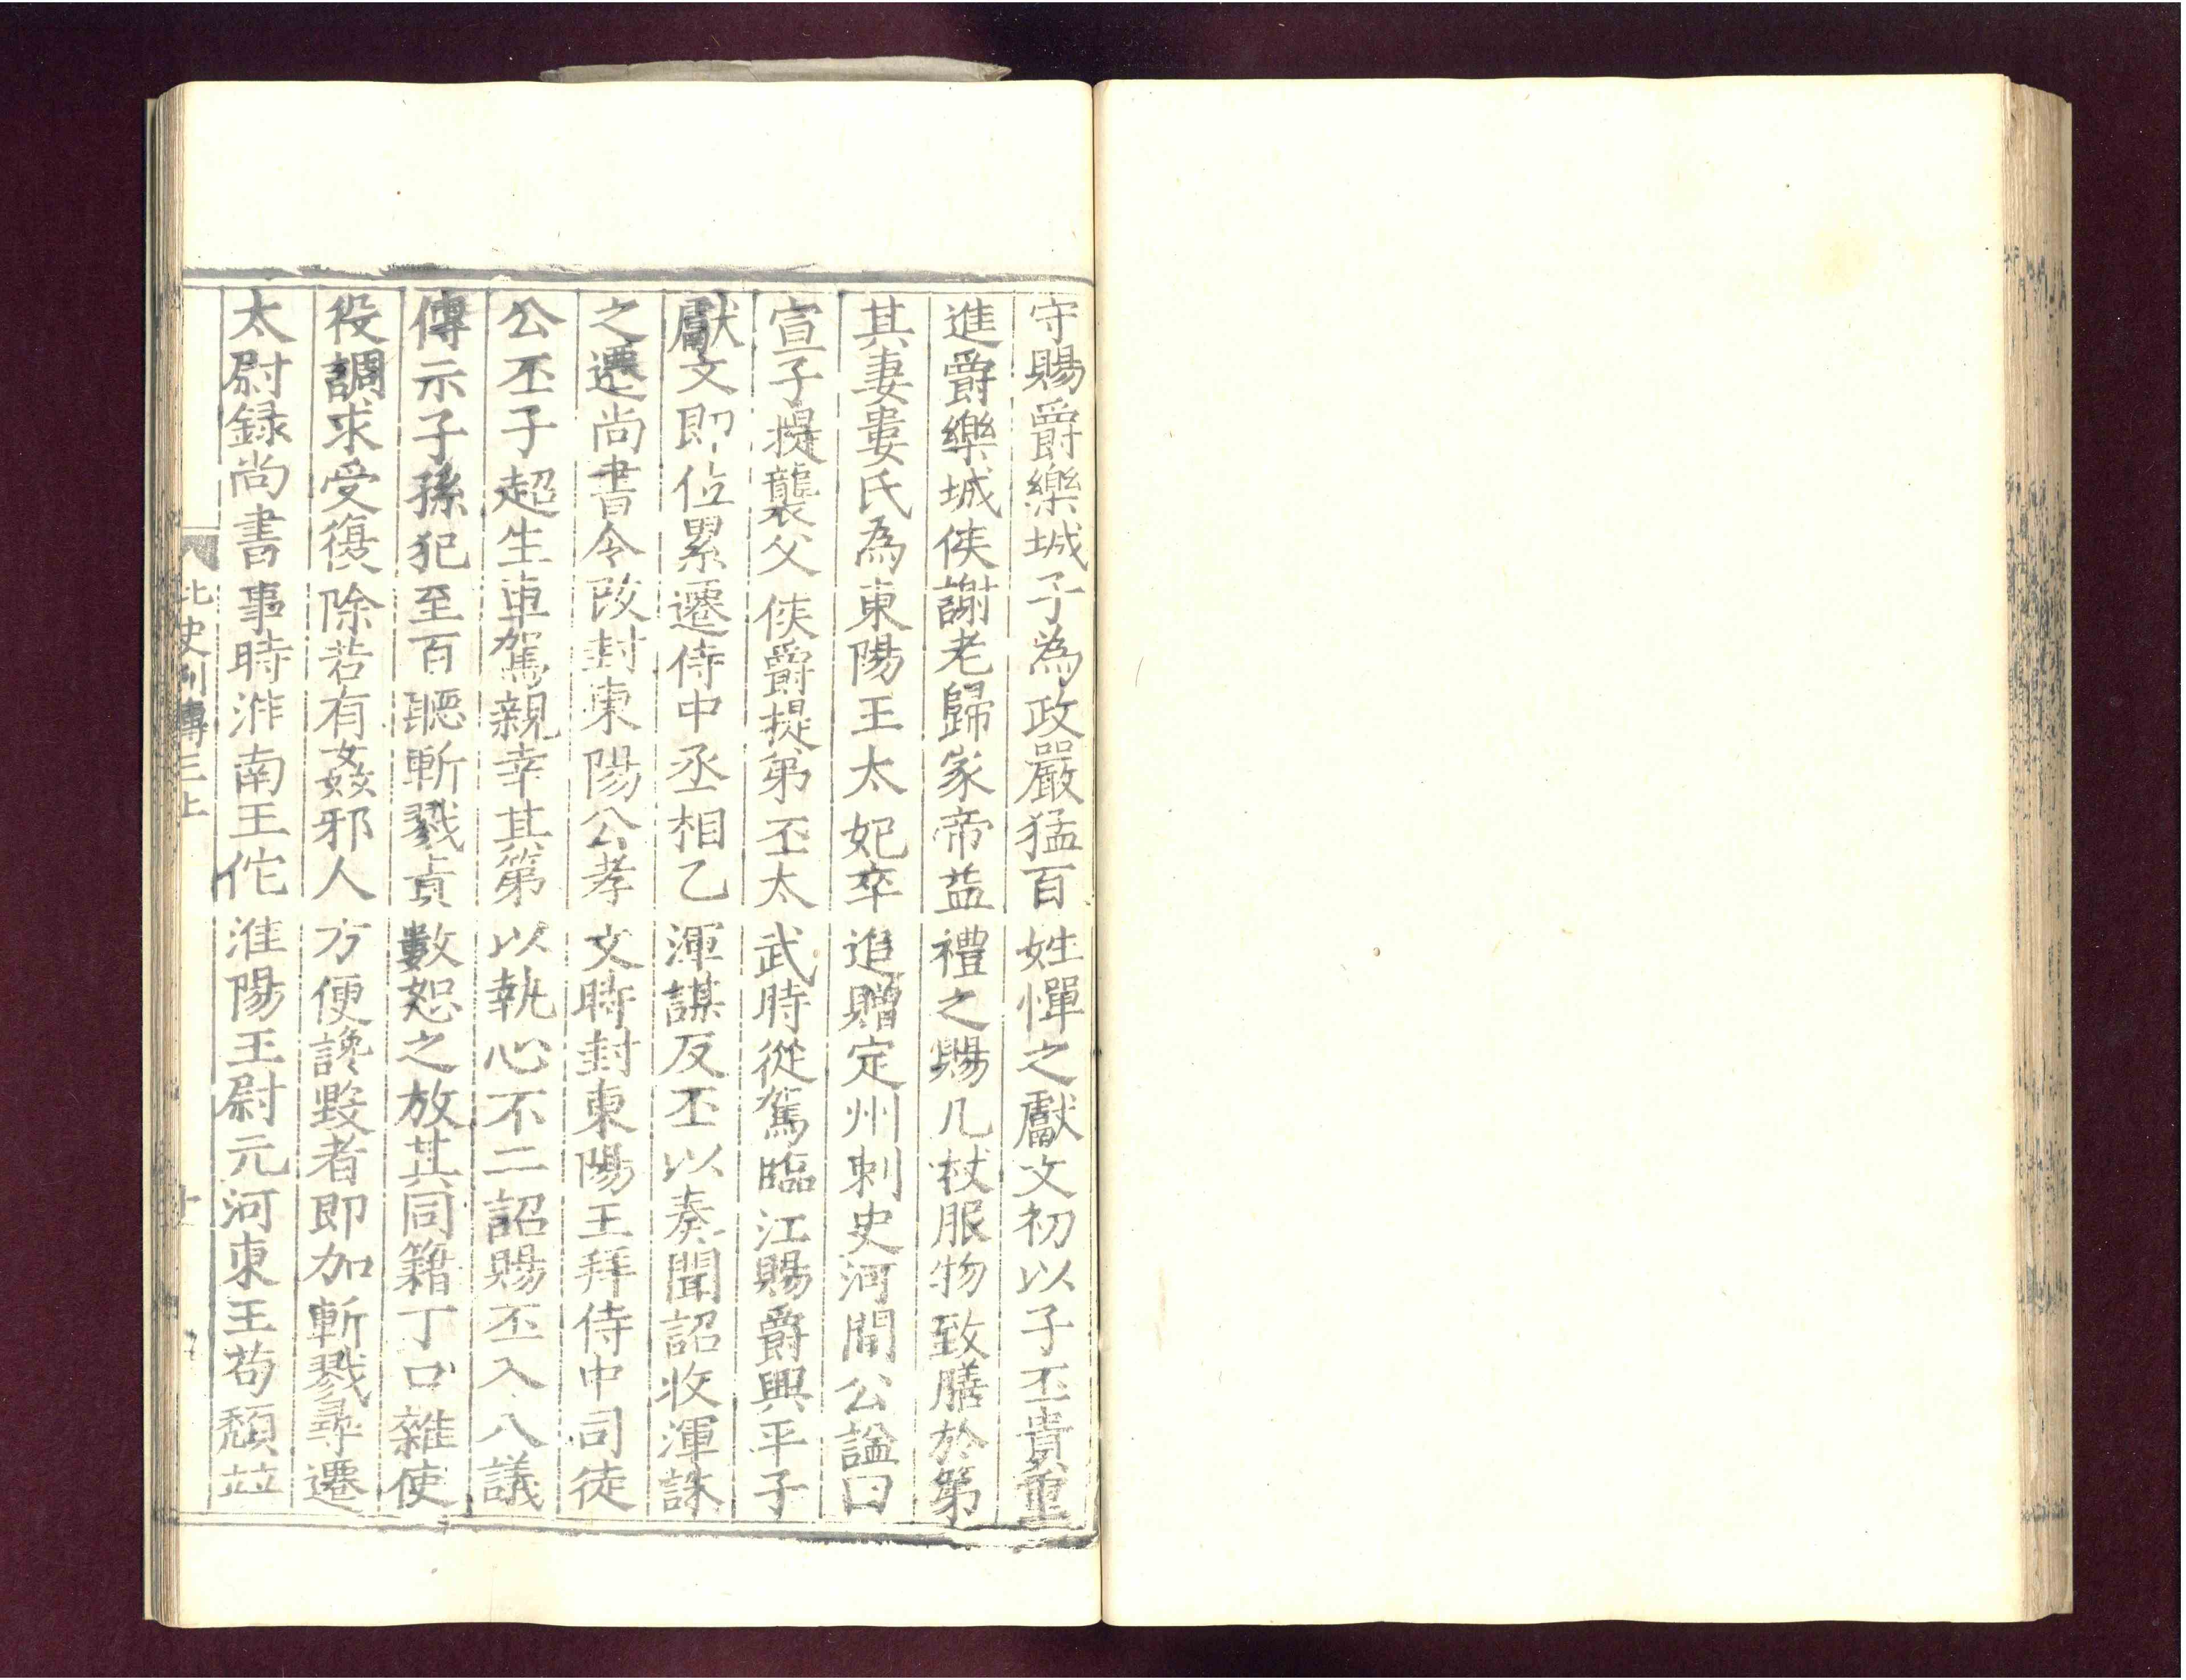 守賜爵樂城子為政嚴猛百姓憚之獻文初以子丕貴重
進爵樂城侯謝老歸家帝益禮之賜几杖服物致膳於第
其妻婁氏為東陽王太妃卒追贈定州刺史河間公諡曰
宣子提襲父侯爵提弟丕太武時從駕臨江賜爵興平子
獻文即位累遷侍中丞相乙渾謀反丕以奏聞詔收渾誅
之遷尚書令改封東陽公孝文時封東陽王拜侍中司徒
公丕子超生車駕親幸其第以執心不二詔賜丕入八議
傳示子孫犯至百聽斬戮貞數恕之放其同籍丁口雜使
役調求受復除若有姦邪人方便讒毀者即加斬戮尋遷
太尉録尚書事時淮南王佗淮陽王尉元河東王苟頹竝
北史列傳三上
十